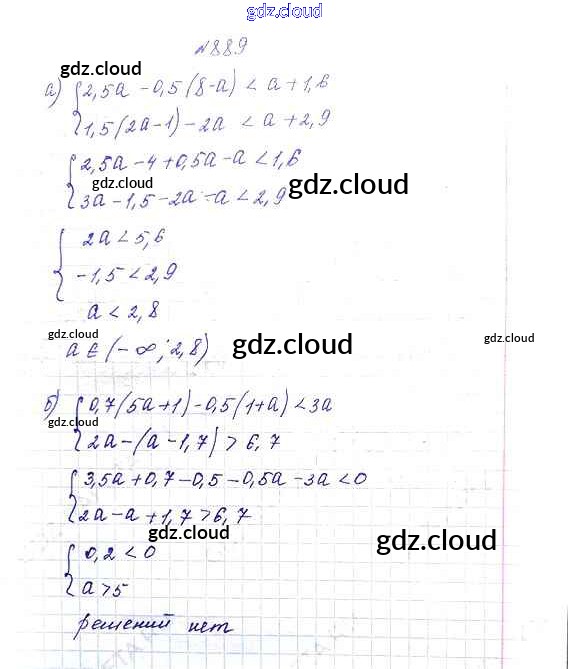 gdz.cloud
№889
gdz.cloud
а) { 2,5a - 0,5(8-a) < a + 1,6
1,5(2a-1) - 2a < a + 2,9
{ 2,5a - 4 + 0,5a - a < 1,6
gdz.cloud gdz.cloud
3a - 1,5 - 2a - a < 2,9
{ 2a < 5,6
-1,5 < 2,9
a < 2,8
gdz.cloud gdz.cloud gdz.cloud
a ∈ (-∞; 2,8)
б) { 0,7(5a+1) - 0,5(1+a) < 3a
gdz.cloud
2a - (a - 1,7) > 6,7
{ 3,5a + 0,7 - 0,5 - 0,5a - 3a < 0
2a - a + 1,7 > 6,7
gdz.cloud gdz.cloud
{ 0,2 < 0
a > 5
решений нет